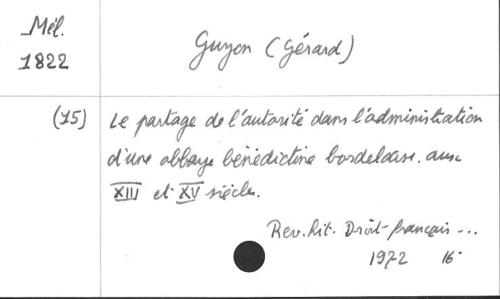 Mél.
1822
Guyon (Gérard)
(75) Le partage de l'autorité dans l'administration
d'une abbaye bénédictine bordelaise. aux
XIII et XV siècles.
Rev. hit. Droit français ...
1972 16°